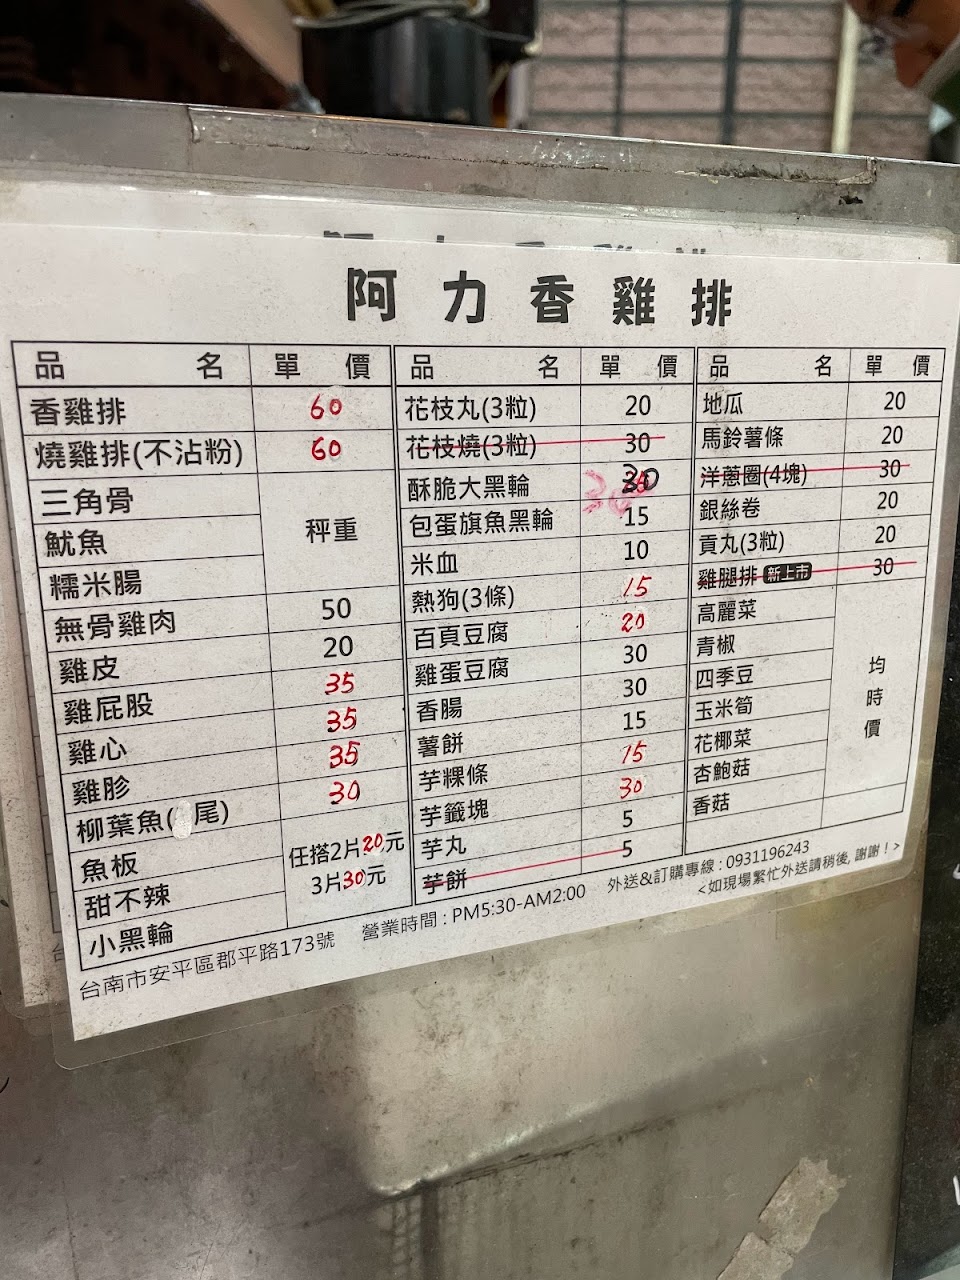 阿力香雞排
品名 單價
香雞排 60
燒雞排(不沾粉) 60
三角骨
魷魚 秤重
糯米腸
無骨雞肉 50
雞皮 20
雞屁股 35
雞心 35
雞胗 35
柳葉魚( 尾) 30
魚板
甜不辣
小黑輪
任搭2片20元
3片30元
品名 單價
花枝丸(3粒) 20
花枝燒(3粒) 30
酥脆大黑輪 30
包蛋旗魚黑輪 15
米血 10
熱狗(3條) 15
百頁豆腐 20
雞蛋豆腐 30
香腸 30
薯餅 15
芋粿條 15
芋籤塊 30
芋丸 5
芋餅 5
品名 單價
地瓜 20
馬鈴薯條 20
洋蔥圈(4塊) 30
銀絲卷 20
貢丸(3粒) 20
雞腿排 新上市 30
高麗菜
青椒
四季豆
玉米筍
花椰菜
杏鮑菇
香菇
均時價
台南市安平區郡平路173號 營業時間：PM5:30-AM2:00 外送&訂購專線：0931196243
<如現場繁忙外送請稍後, 謝謝！>